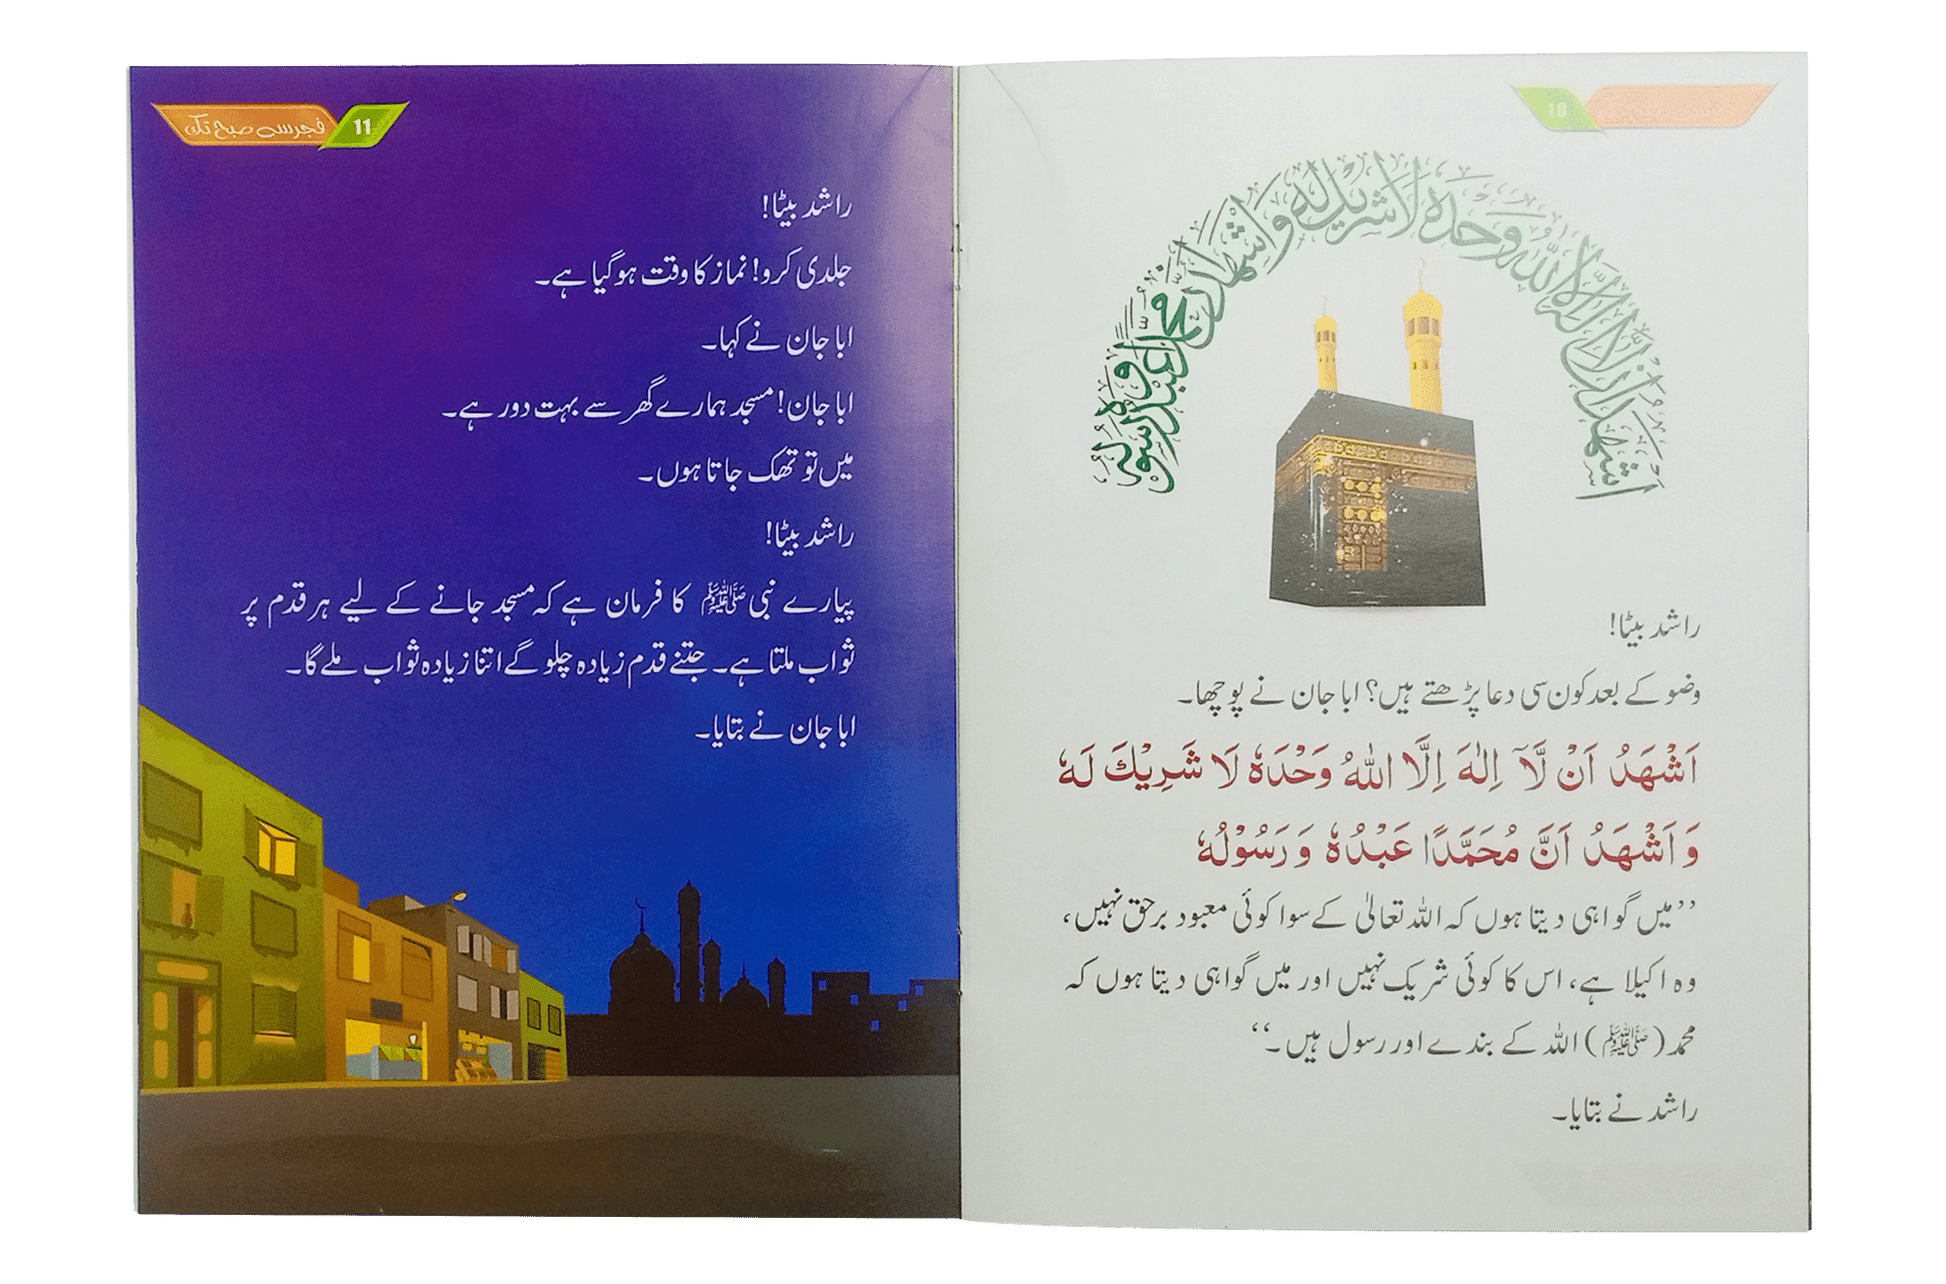 10
اشهد ان لا اله الا الله وحده لا شریک له و اشهد ان محمدا عبده و رسوله
راشد بیٹا!
وضو کے بعد کون سی دعا پڑھتے ہیں؟ ابا جان نے پوچھا۔
اَشْهَدُ اَنْ لَّآ اِلٰهَ اِلَّا اللهُ وَحْدَهٗ لَا شَرِيْكَ لَهٗ
وَ اَشْهَدُ اَنَّ مُحَمَّدًا عَبْدُهٗ وَ رَسُوْلُهٗ
’’میں گواہی دیتا ہوں کہ اللہ تعالیٰ کے سوا کوئی معبود برحق نہیں،
وہ اکیلا ہے، اس کا کوئی شریک نہیں اور میں گواہی دیتا ہوں کہ
محمد (ﷺ) اللہ کے بندے اور رسول ہیں۔‘‘
راشد نے بتایا۔
فجر سے صبح تک 11
راشد بیٹا!
جلدی کرو! نماز کا وقت ہو گیا ہے۔
ابا جان نے کہا۔
ابا جان! مسجد ہمارے گھر سے بہت دور ہے۔
میں تو تھک جاتا ہوں۔
راشد بیٹا!
پیارے نبی ﷺ کا فرمان ہے کہ مسجد جانے کے لیے ہر قدم پر
ثواب ملتا ہے۔ جتنے قدم زیادہ چلو گے اتنا زیادہ ثواب ملے گا۔
ابا جان نے بتایا۔